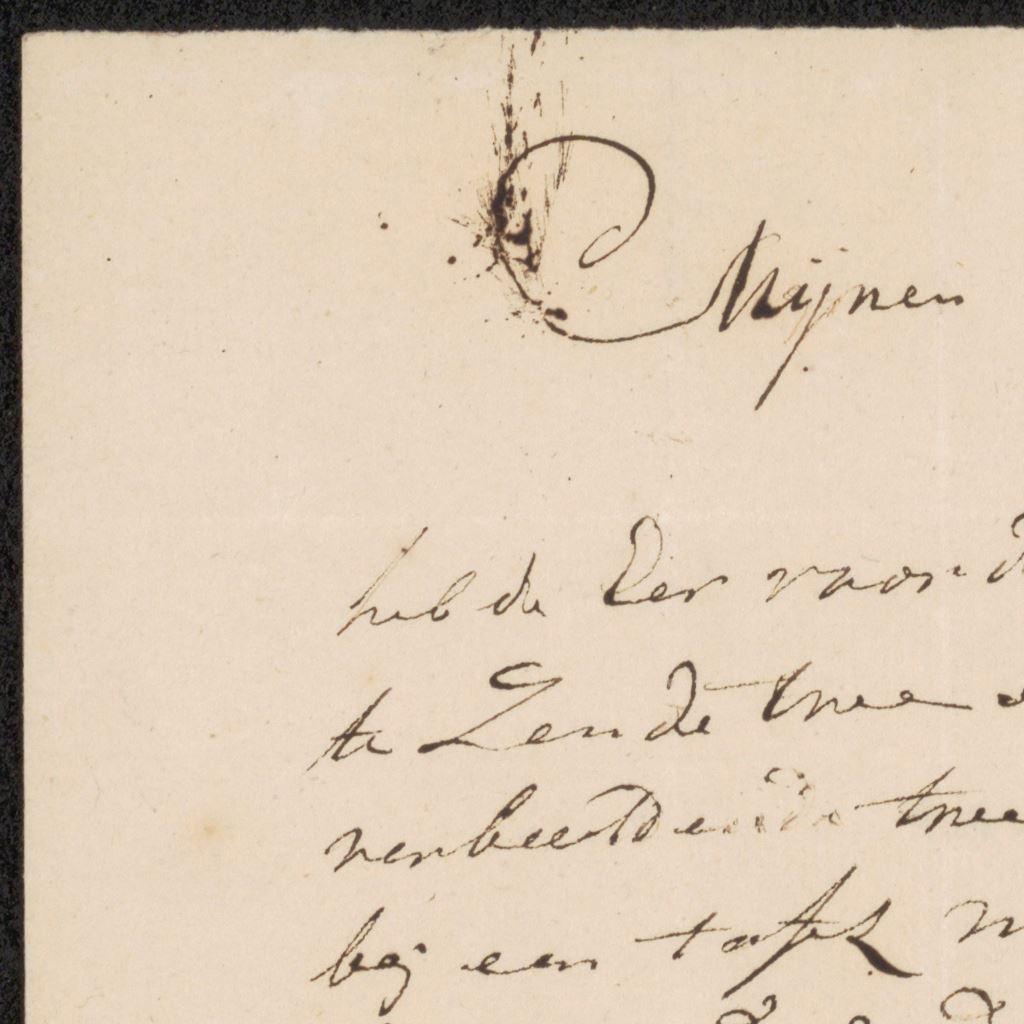 Mijnen
heb de Eer voor d
te Zende twee
verbeeldende twee
bij een tafel